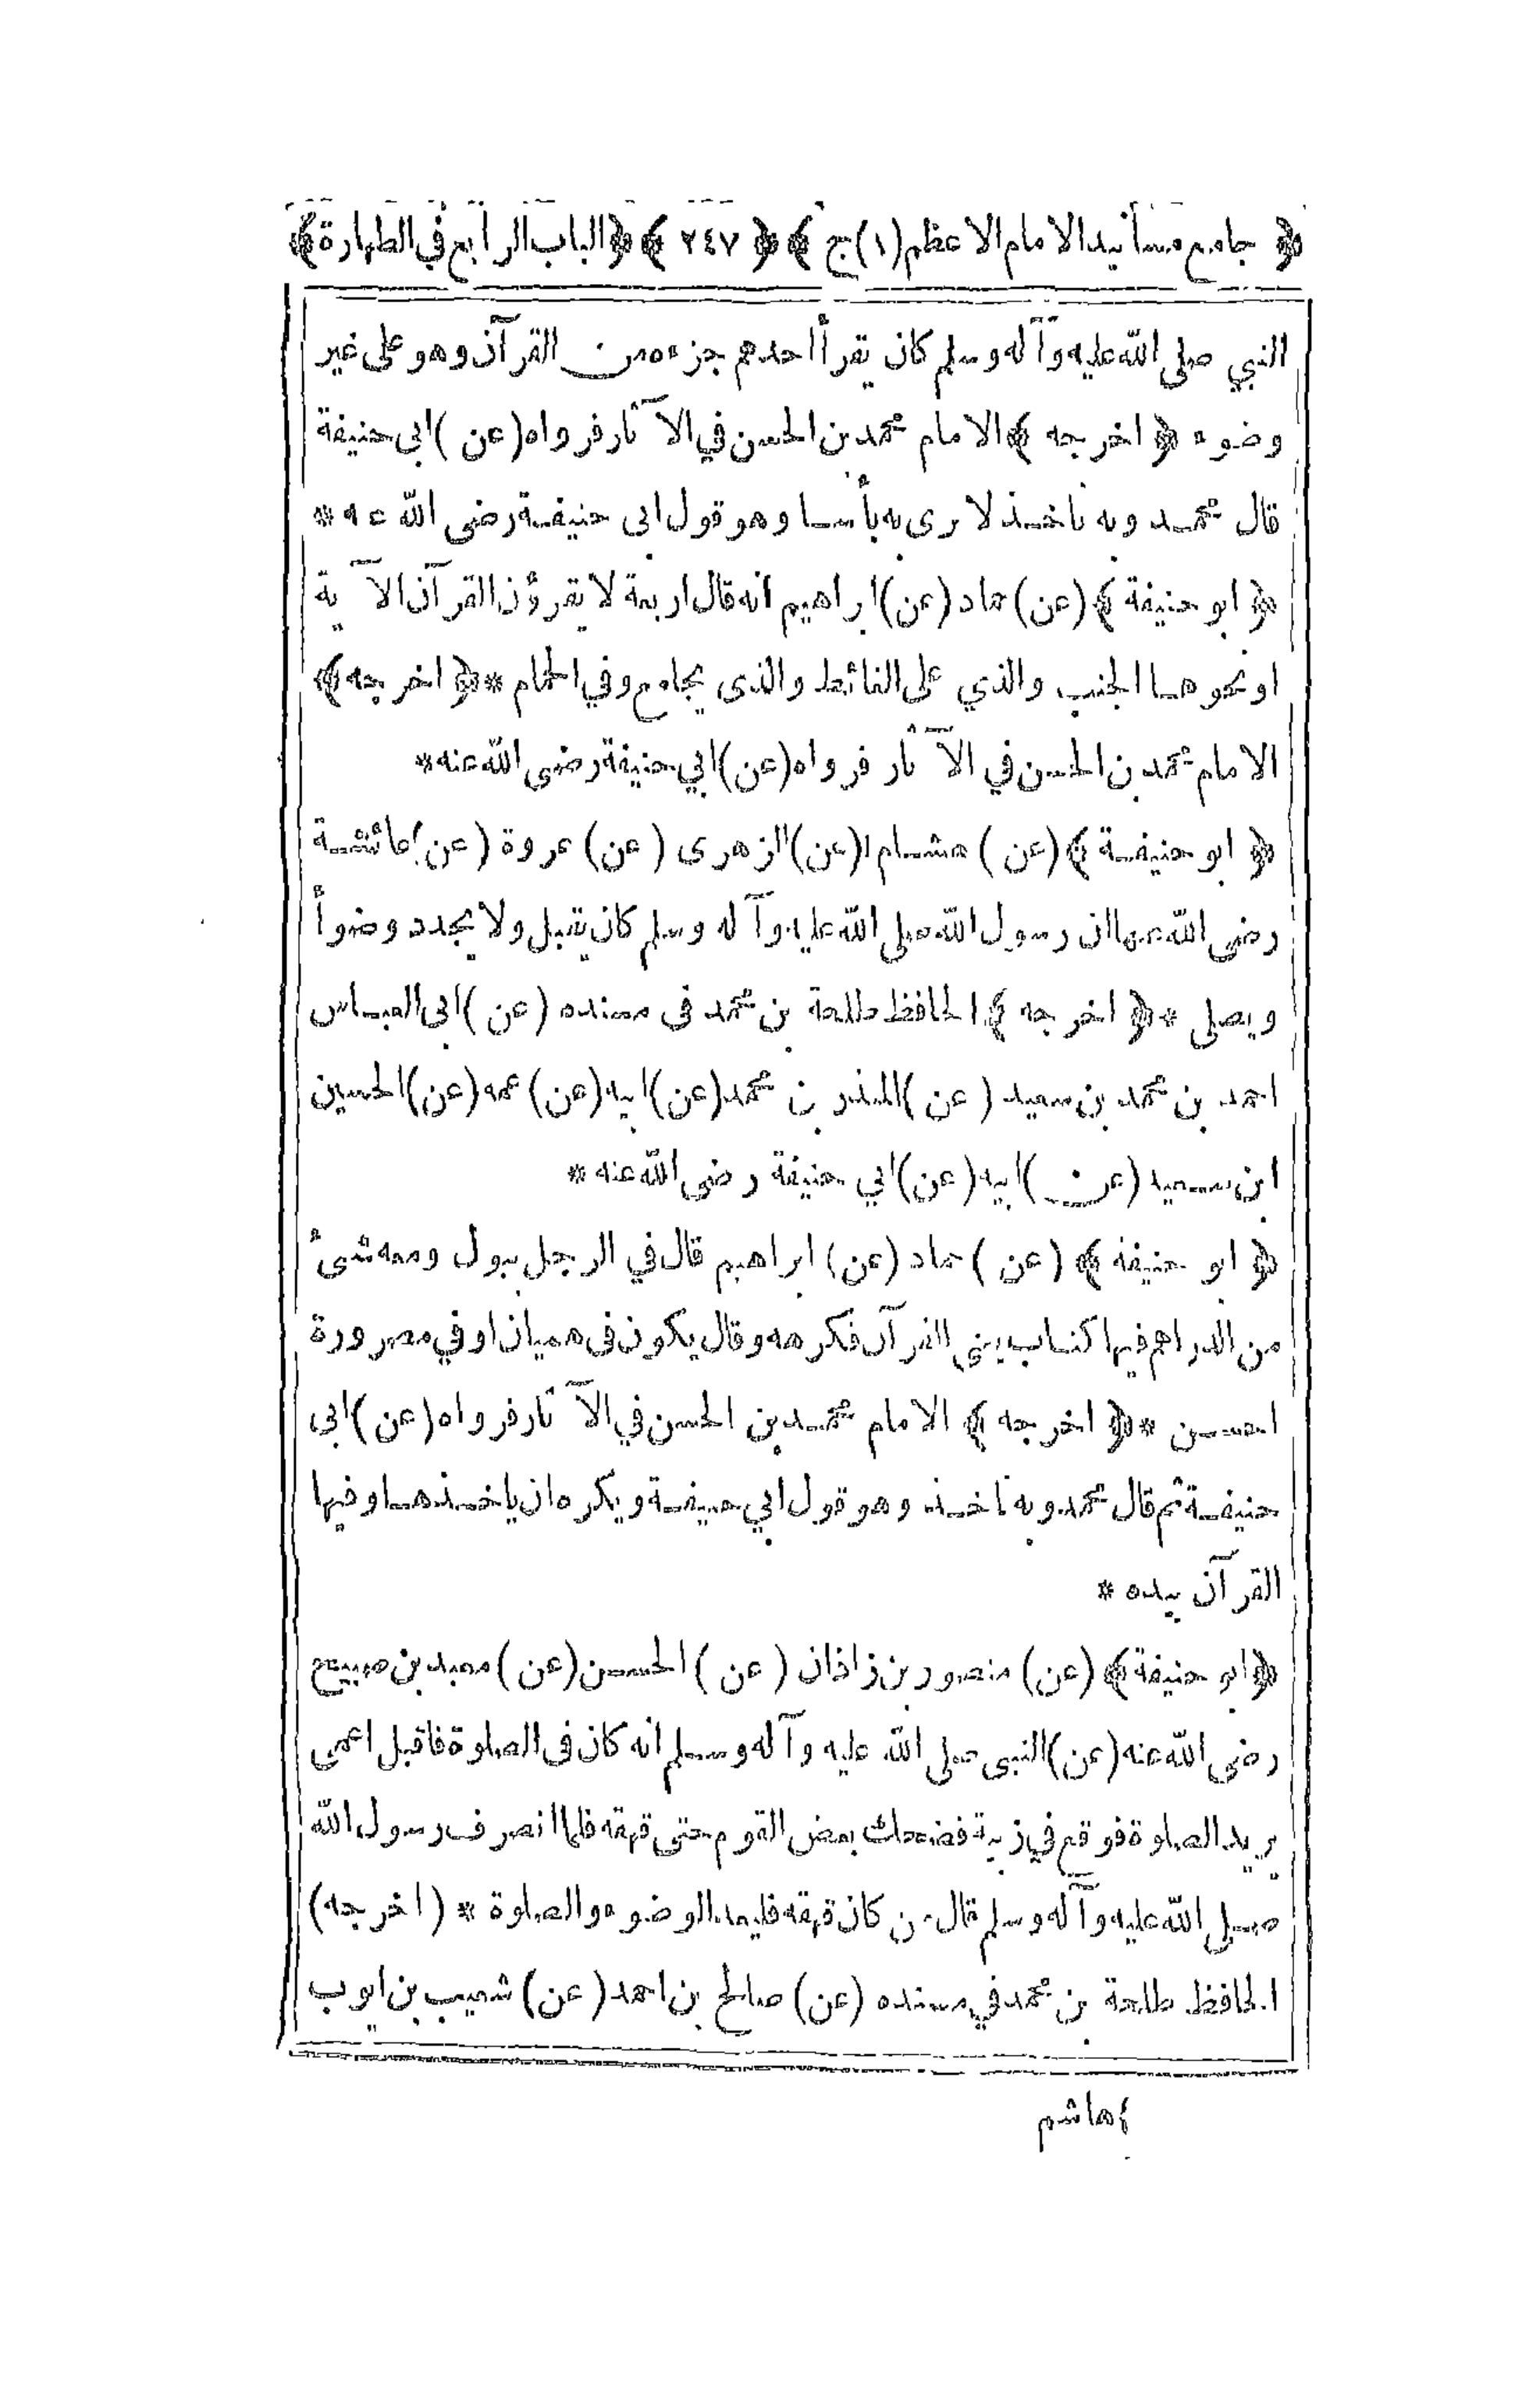 ﴿ جامع مسانيد الامام الاعظم(١)ج ﴾ ﴿ ٢٤٧ ﴾ ﴿الباب الرابع في الطهارة﴾
النبي صلى الله عليه وآله وسلم كان يقرأ احدهم جزءه من القرآن وهو على غير
وضوء ﴿ اخرجه ﴾ الامام محمد بن الحسن في الآثار فرواه (عن ) ابى حنيفة
قال محمد وبه ناخذ لا رى به بأسا وهو قول ابى حنيفة رضى الله عنه *
﴿ ابو حنيفة ﴾ (عن) حماد (عن) ابراهيم انه قال اربعة لا يقرؤن القرآن الا الآية
او نحوها الجنب والذي على الغائط والذى يجامع وفي الحمام *﴿ اخرجه ﴾
الامام محمد بن الحسن في الآثار فرواه (عن) ابي حنيفة رضى الله عنه *
﴿ ابو حنيفة ﴾ (عن ) هشام ١ (عن) الزهرى ( عن) عروة (عن) عائشة
رضى الله عنها ان رسول الله صلى الله عليه وآله وسلم كان يقبل ولا يجدد وضوأ
ويصلى *﴿ اخرجه ﴾ الحافظ طلحة بن محمد فى مسنده (عن ) ابى العباس
احمد بن محمد بن سعيد ( عن ) المنذر بن محمد (عن) ابيه (عن) عمه (عن) الحسين
ابن سعيد (عن ) ابيه (عن) ابي حنيفة رضى الله عنه *
﴿ ابو حنيفة ﴾ ( عن ) حماد (عن) ابراهيم قال في الرجل يبول ومعه شئ
من الدراهم فيها كتاب يعنى القرآن فكرهه وقال يكون فى هميان او في مصرورة
احسن *﴿ اخرجه ﴾ الامام محمد بن الحسن في الآثار فرواه (عن ) ابى
حنيفة ثم قال محمد وبه ناخذ وهو قول ابي حنيفة ويكره ان ياخذها وفيها
القرآن بيده *
﴿ابو حنيفة﴾ (عن) منصور بن زاذان ( عن ) الحسن (عن ) معبد بن صبيح
رضى الله عنه (عن) النبى صلى الله عليه وآله وسلم انه كان فى الصلوة فاقبل اعمى
يريد الصلوة فوقع في زبية فضحك بعض القوم حتى قهقه فلما انصرف رسول الله
صلى الله عليه وآله وسلم قال من كان قهقه فليعد الوضوء والصلوة * ( اخرجه)
الحافظ طلحة بن محمد في مسنده (عن) صالح بن احمد (عن) شعيب بن ايوب
هاشم